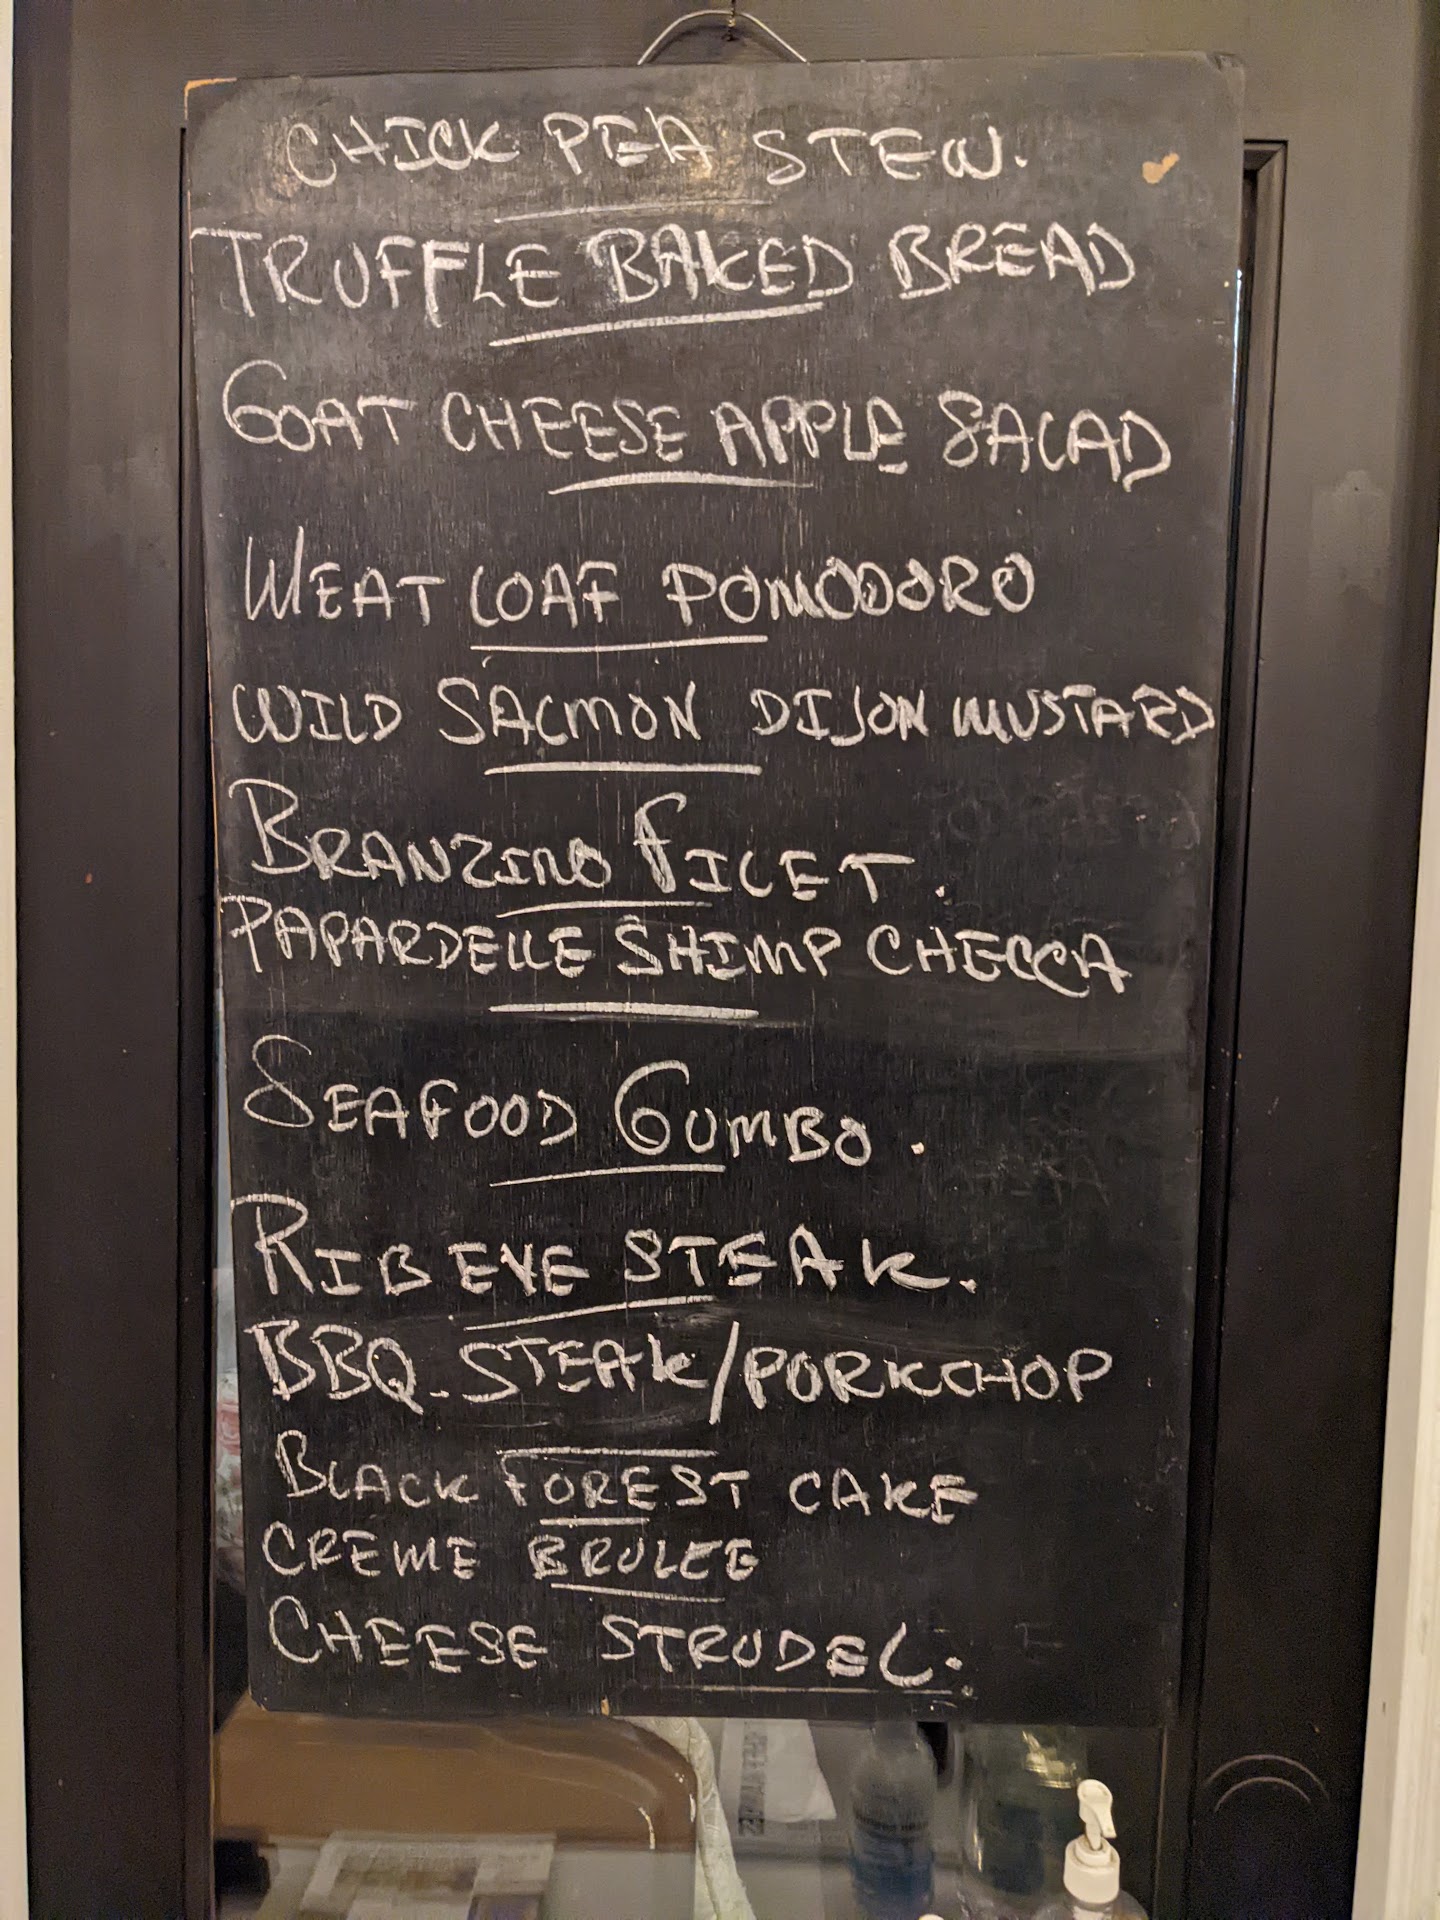 CHICK PEA STEW.
TRUFFLE BAKED BREAD
GOAT CHEESE APPLE SALAD
MEAT LOAF POMODORO
WILD SALMON DIJON MUSTARD
BRANZINO FILET.
PAPARDELLE SHIMP CHECCA
SEAFOOD GUMBO.
RIB EYE STEAK.
BBQ. STEAK/PORKCHOP
BLACK FOREST CAKE
CREME BRULEE
CHEESE STRUDEL.